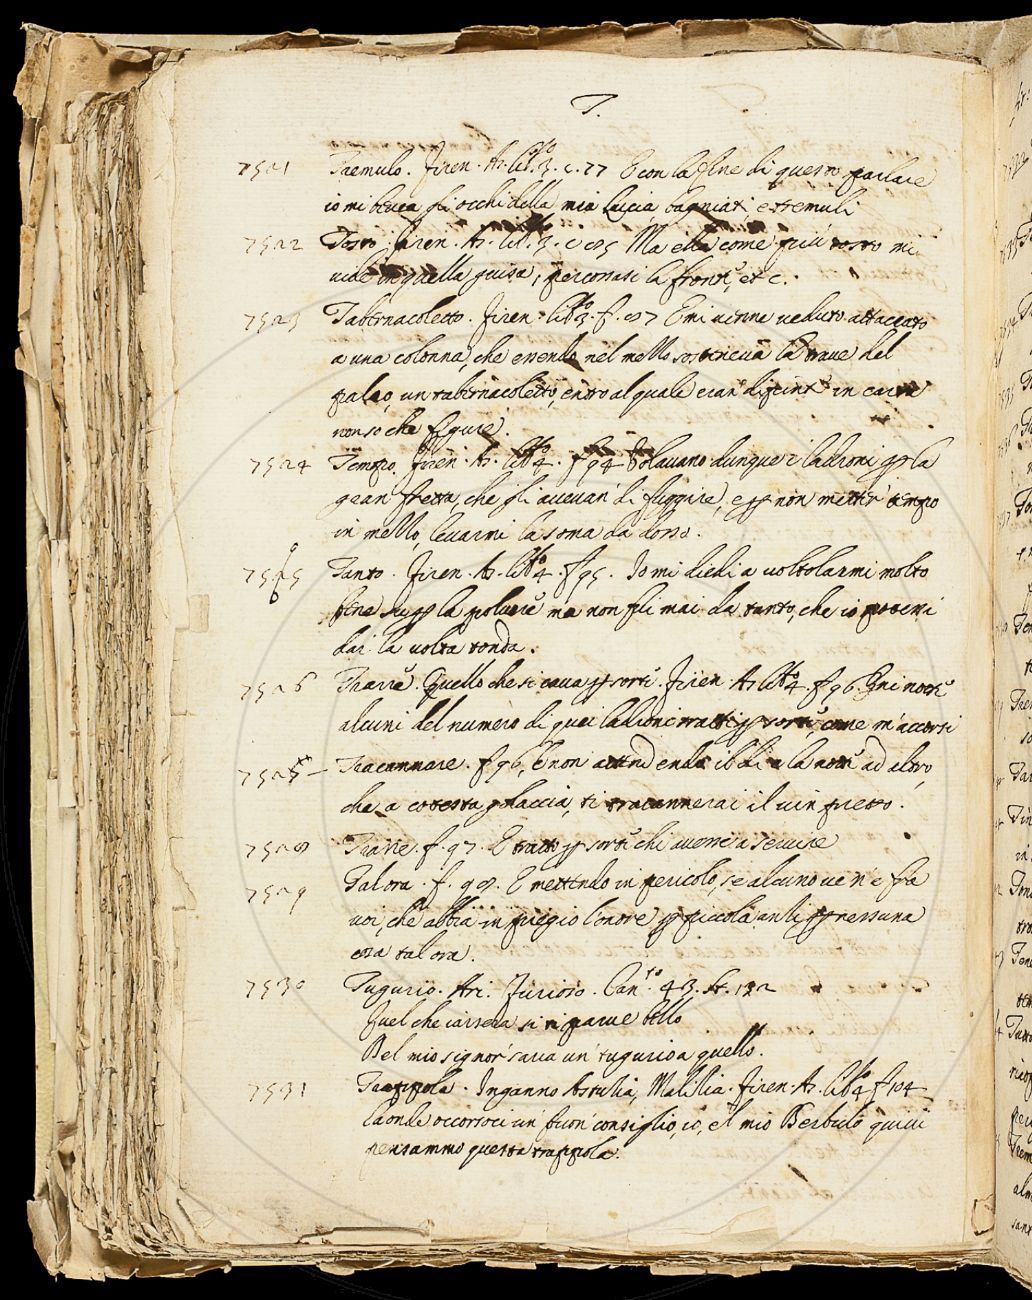 T.
7521 Tremulo. Firen. As. lib.º 3. c. 77 E con la fine di questo parlare
io mi beuea gli occhi della mia lucia, bagniati, e tremuli
7522 Tosto, Firen. As. lib. 3. c 85 Ma ella come più tosto mi
uide in quella guisa; percotasi la fronte, et c.
7523 Tabernacoletto. Firen. lib.º 3. f. 87 E mi uenne ueduto attaccato
a una colonna, che essendo nel mezzo sosteneua la traue del
palco, un tabernacoletto, entro al quale eran dipinte in carte
non so che figure.
7524 Tempo. Firen. As. lib.º 4. f 94 Volauano dunque i ladroni p la
gran fretta, che gli aueuan' di fuggire, e p non metter tempo
in mezzo, leuarmi la soma da dosso.
7525 Tanto. Firen. As. lib.º 4. f 95. Io mi diedi a uoltolarmi molto
bene su p la poluere ma non fui mai da tanto, che io potessi
dar la uolta tonda.
7526 Trarre. Quello che si caua p sorte. Firen. As lib.º 4. f 96. Ogni notte
alcuni del numero di quei ladroni tratti p sorte, come m'accorsi
7527 Tracannare. f 96, E non attendendo il dì e la notte ad altro,
che a cotesta golaccia, ti tracannerai il uin pretto.
7528 Trarre. f. 97. E tratto p sorte chi auesse a seruire
7529 Talora. f. 98. E mettendo in pericolo, se alcuno ue n'e fra
voi, che abbia in pregio l'onore p piccola, anzi p nessuna
cosa talora.
7530 Tugurio. Ari. Furioso. Can.to 43. St. 132
Quel che iarsera si ti parue bello
Del mio signor' saria un' tugurio a quello.
7531 Trappola. Inganno Astuzia, Malizia. Firen. As. lib.º 4 f 104
Laonde occorsoci un' buon' consiglio, io, e'l mio Berbulo quiui
pensammo questa trappola.